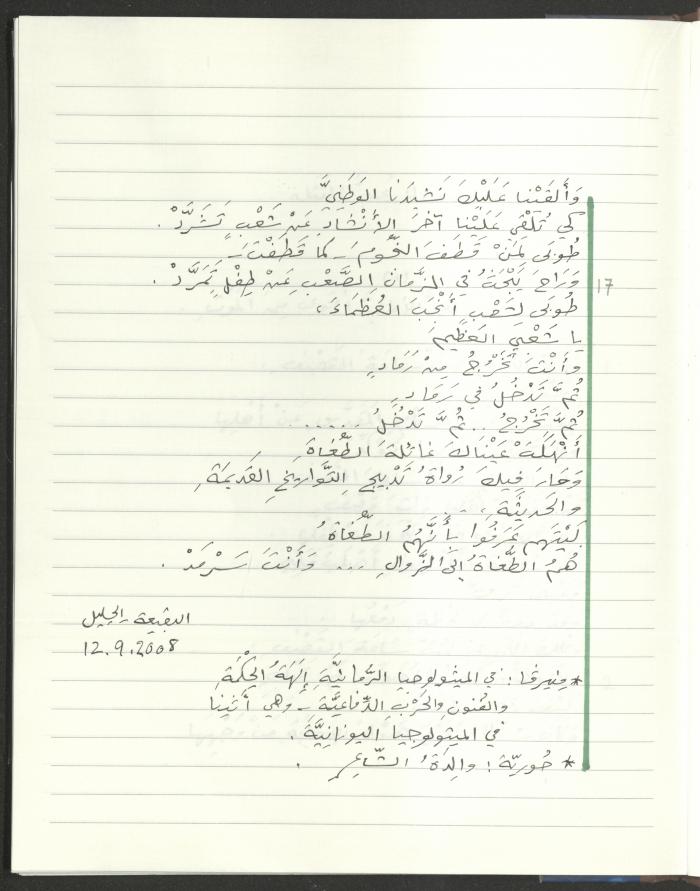 وَأَلْقَيْنا عَلَيْكَ نَشيدَنا الوَطَنِيَّ
كَي تُلْقي عَلَيْنا آخرَ الأَنْشادِ عَنْ شَعْبٍ تَشَرَّدْ .
طُوبَى لِمَنْ قَطَفَ النُّجُومَ - كَما قَطَفْتَ -
وَراحَ يَبْحَثُ في الزَّمانِ الصَّعْبِ عَنْ طِفْلٍ تَمَرَّدْ .
17
طُوبَى لِشَعْبٍ أَنْجَبَ العُظَماءَ ،
يا شَعْبي العَظيمَ
وَأَنْتَ تَخْرُجُ مِنْ رَمَادٍ
ثُمَّ تَدْخُلُ في رَمَادٍ
ثُمَّ تَخْرُجُ .. ثُمَّ تَدْخُلُ .....
أَنْهَكَتْ عَيْنَاكَ غائلةَ الطُّغاةِ
وَحَارَ فيكَ رُواةُ تَدْبيجِ التَّواريخِ القَديمَةِ
والحَديثَةِ ، ..
لَيْتَهم عَرَفُوا بِأَنَّهُمُ الطُّغاةُ
هُمُ الطُّغاةُ إِلى الزَّوالِ ... وَأَنْتَ سَرْمَدْ .
البقيعة - الجليل
12.9.2008
* مِنيرڤا : في الميثولوجيا الرُّمانيَّةِ إِلَهَةُ الحِكْمَةِ
والفُنونِ والحَرْبِ الدِّفاعيَّة - وهي أَثينا
في الميثولوجيا اليونانِيَّة .
* حُوريّة : والِدَةُ الشّاعِرِ .